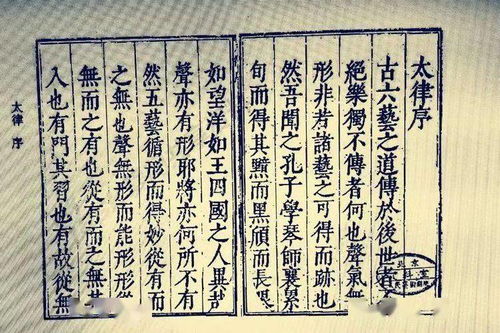 太律序
古六藝之道傳於後世者
絶樂獨不傳者何也聲氣無
形非若諸藝之可得而跡也
然吾聞之孔子學琴師襄
旬而得其黯而黑頎而長眼
如望洋如王四國之人異哉
聲亦有形耶將亦何所不有
然五藝循形而得妙從有而
之無也聲無形而能形形從
無而之有也從有而之無其
入也有門其習也有故從無
太律 序